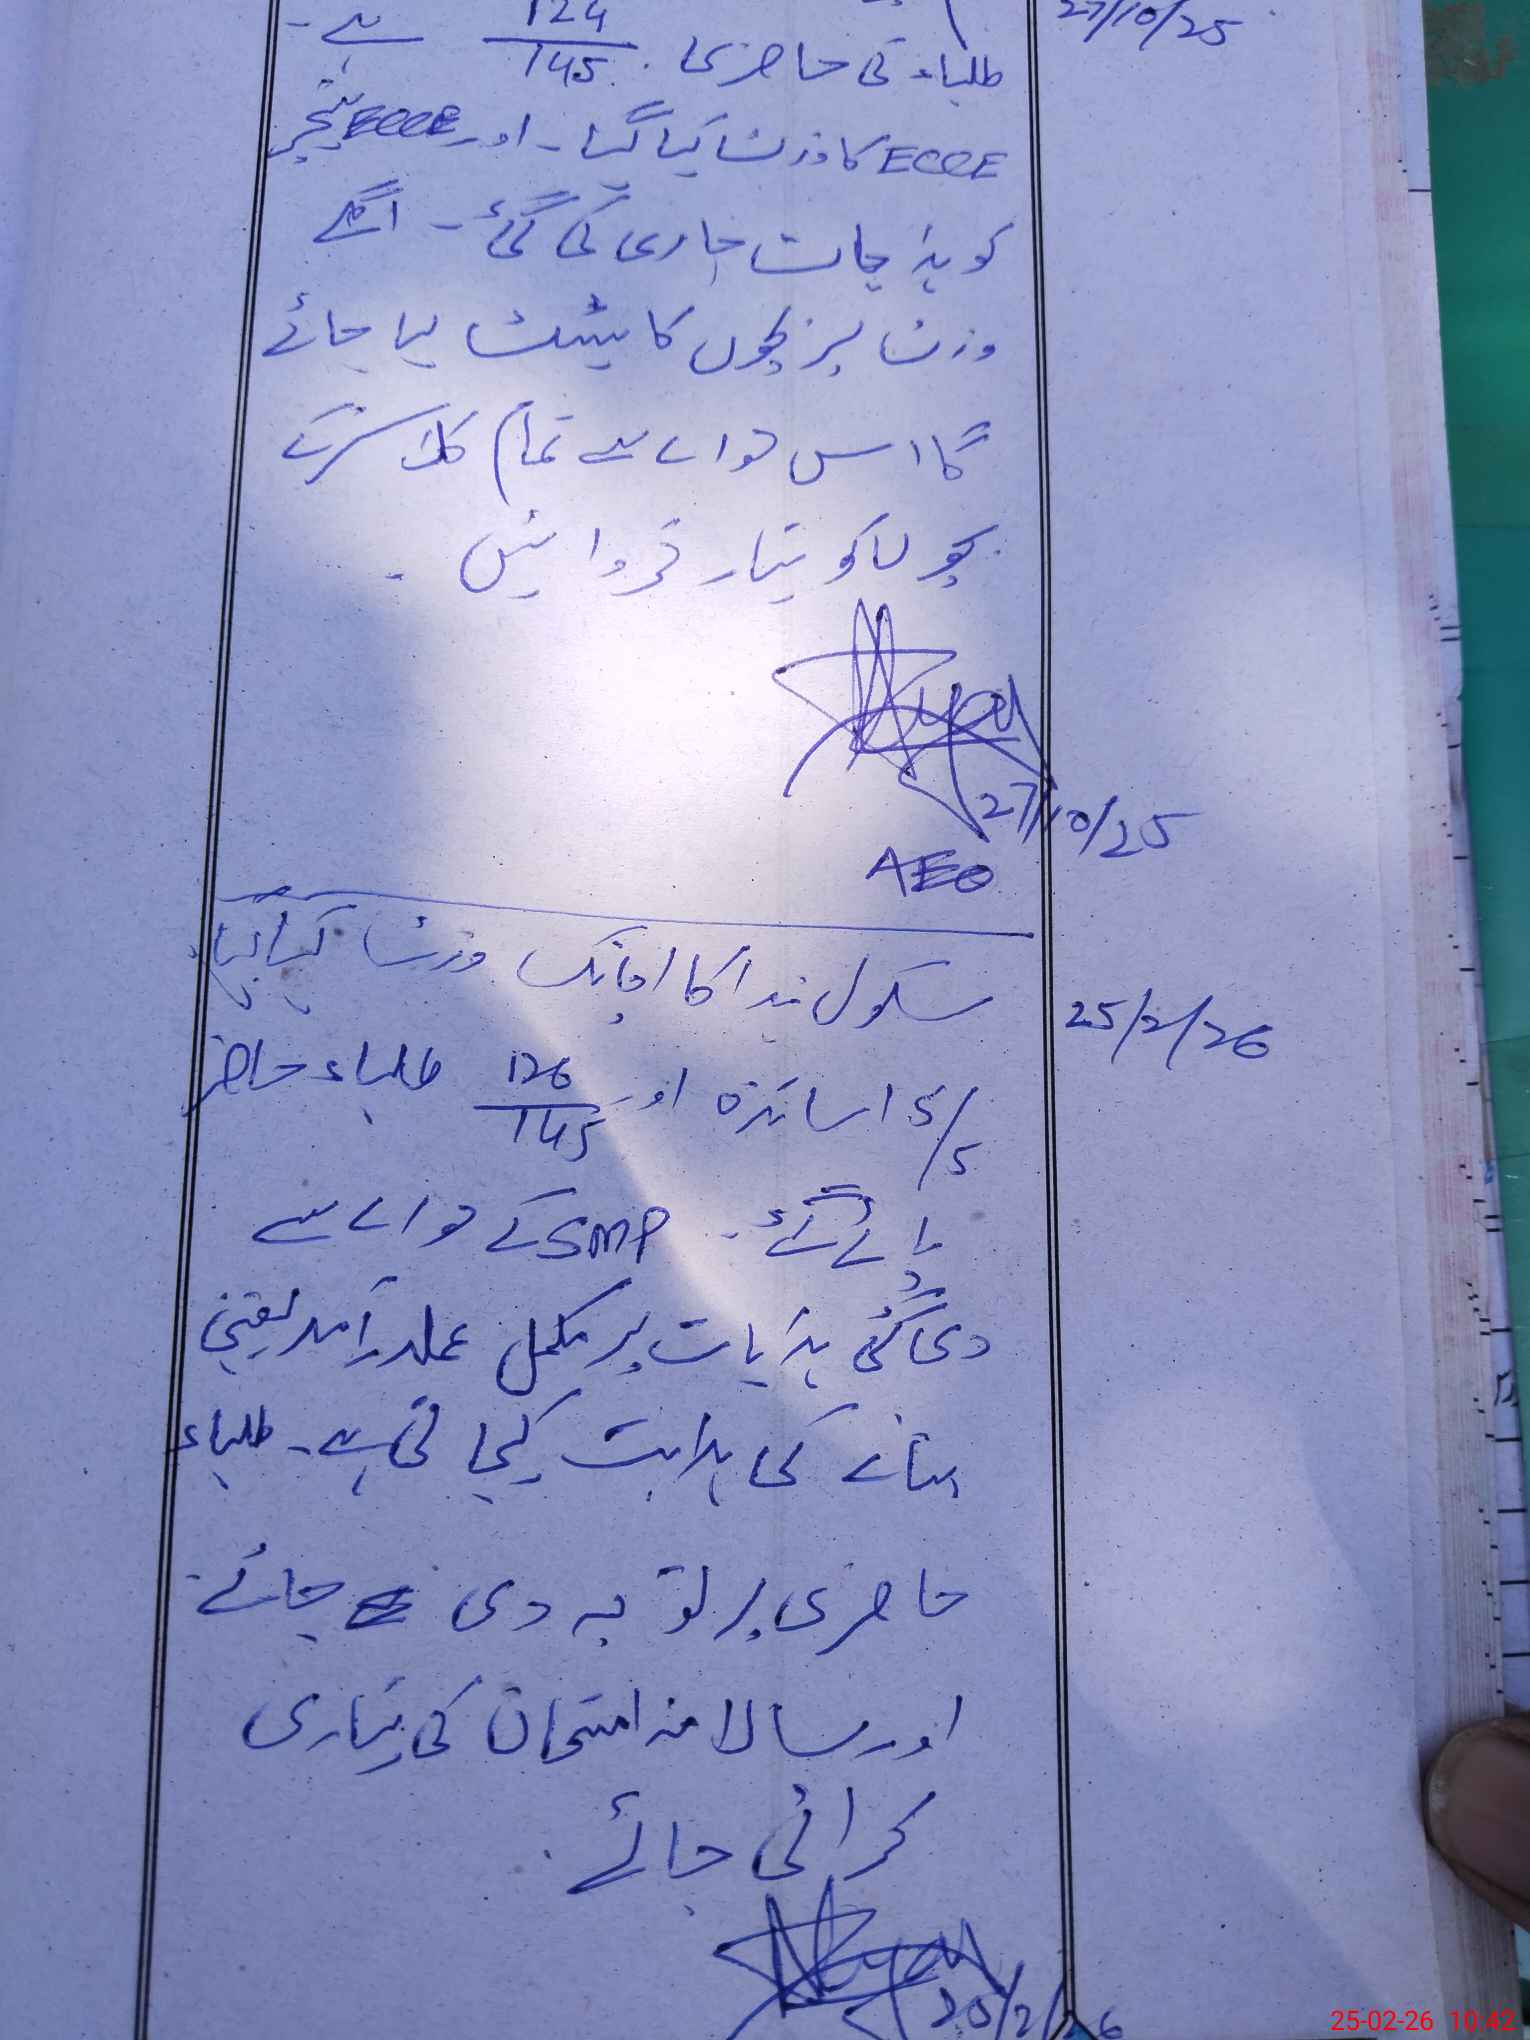 27/10/25
طلباء کی حاضری 124/145 ہے۔
ECCE کا وزٹ کیا گیا۔ اور ECCE ٹیچر
کو ہدایات جاری کی گئی۔ اگلے
وزٹ پر بچوں کا ٹیسٹ لیا جائے
گا اس حوالے سے تمام کلاسز کے
بچوں کو تیار کروائیں۔
27/10/25
AEO
25/2/26
سکول ہذا کا اچانک وزٹ کیا گیا۔
5/5 اساتذہ اور 126/145 طلباء حاضر
پائے گئے۔ SMP کے حوالے سے
دی گئی ہدایات پر مکمل عملدرآمد یقینی
بنانے کی ہدایت کی جاتی ہے۔ طلباء
حاضری پر توجہ دی جائے۔
اور سالانہ امتحان کی تیاری
کرائی جائے۔
25/2/26
25-02-26 10:42